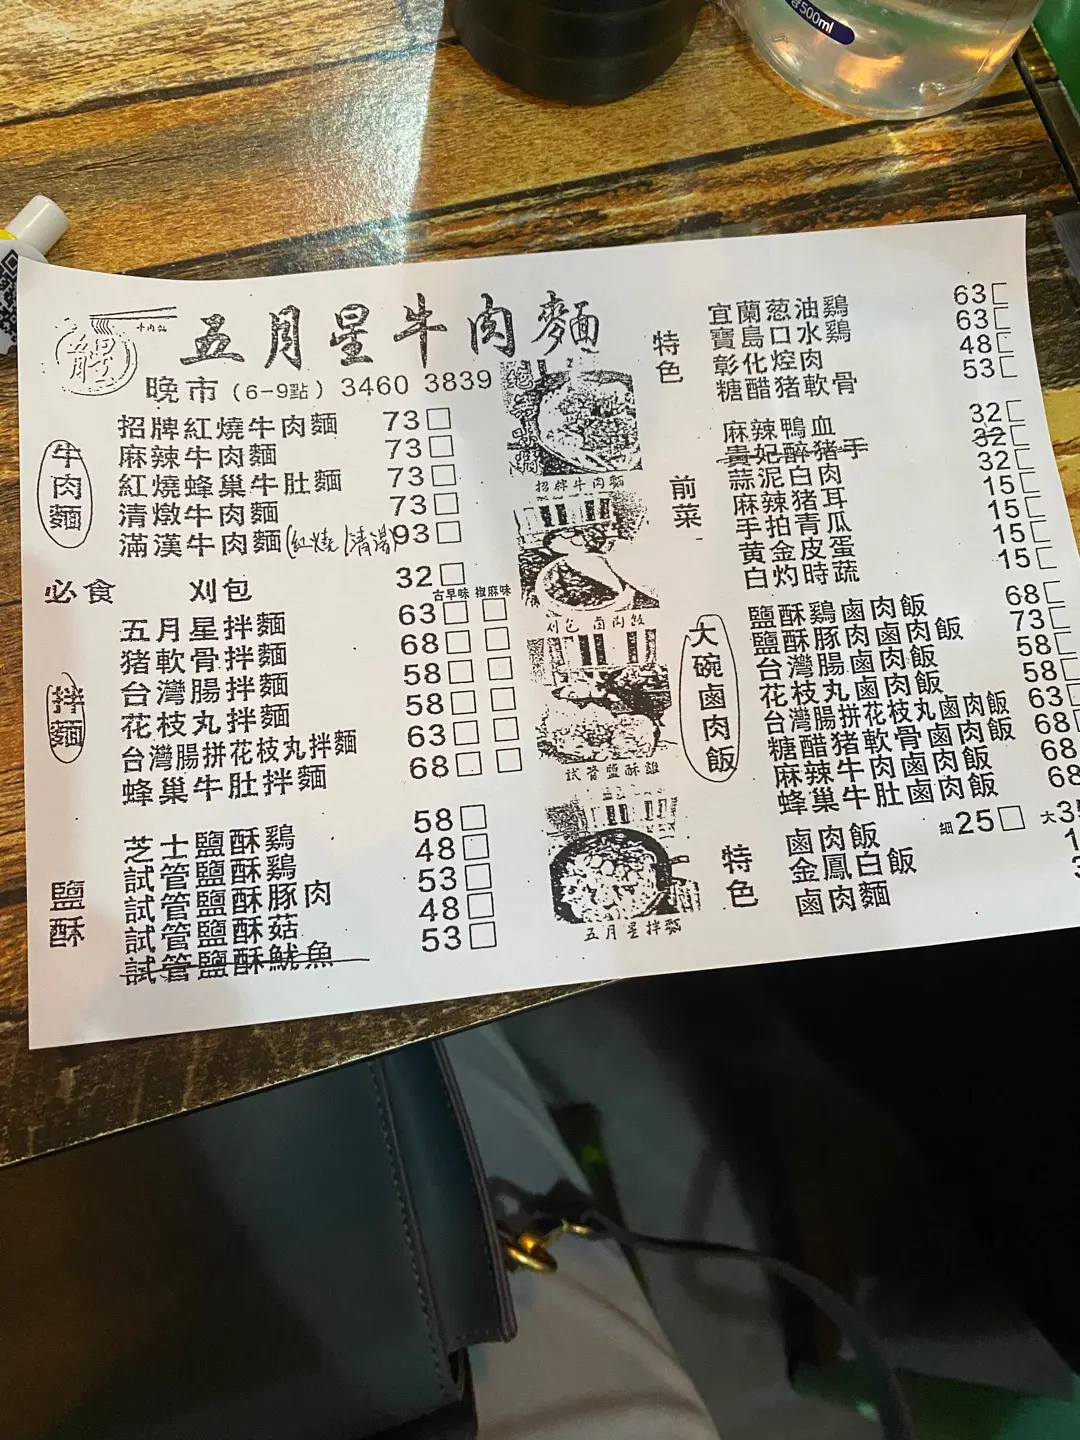 500ml
五月星牛肉麵
晚市 (6-9點) 3460 3839
牛肉麵
招牌紅燒牛肉麵 73
麻辣牛肉麵 73
紅燒蜂巢牛肚麵 73
清燉牛肉麵 73
滿漢牛肉麵(紅燒/清湯) 93
必食 刈包 32
古早味 椒麻味
拌麵
五月星拌麵 63
豬軟骨拌麵 68
台灣腸拌麵 58
花枝丸拌麵 58
台灣腸拼花枝丸拌麵 63
蜂巢牛肚拌麵 68
鹽酥
芝士鹽酥鷄 58
試管鹽酥鷄 48
試管鹽酥豚肉 53
試管鹽酥菇 48
試管鹽酥魷魚 53
招牌牛肉麵
刈包 鹵肉飯
試管鹽酥雞
五月星拌麵
特色
宜蘭葱油鷄 63
寶島口水鷄 63
彰化焢肉 48
糖醋猪軟骨 53
前菜
麻辣鴨血 32
貴妃醉猪手 32
蒜泥白肉 32
麻辣猪耳 15
手拍青瓜 15
黄金皮蛋 15
白灼時蔬 15
大碗鹵肉飯
鹽酥鷄鹵肉飯 68
鹽酥豚肉鹵肉飯 73
台灣腸鹵肉飯 58
花枝丸鹵肉飯 58
台灣腸拼花枝丸鹵肉飯 63
糖醋猪軟骨鹵肉飯 68
麻辣牛肉鹵肉飯 68
蜂巢牛肚鹵肉飯 68
特色
鹵肉飯 細25 大3
金鳳白飯 1
鹵肉麵 3